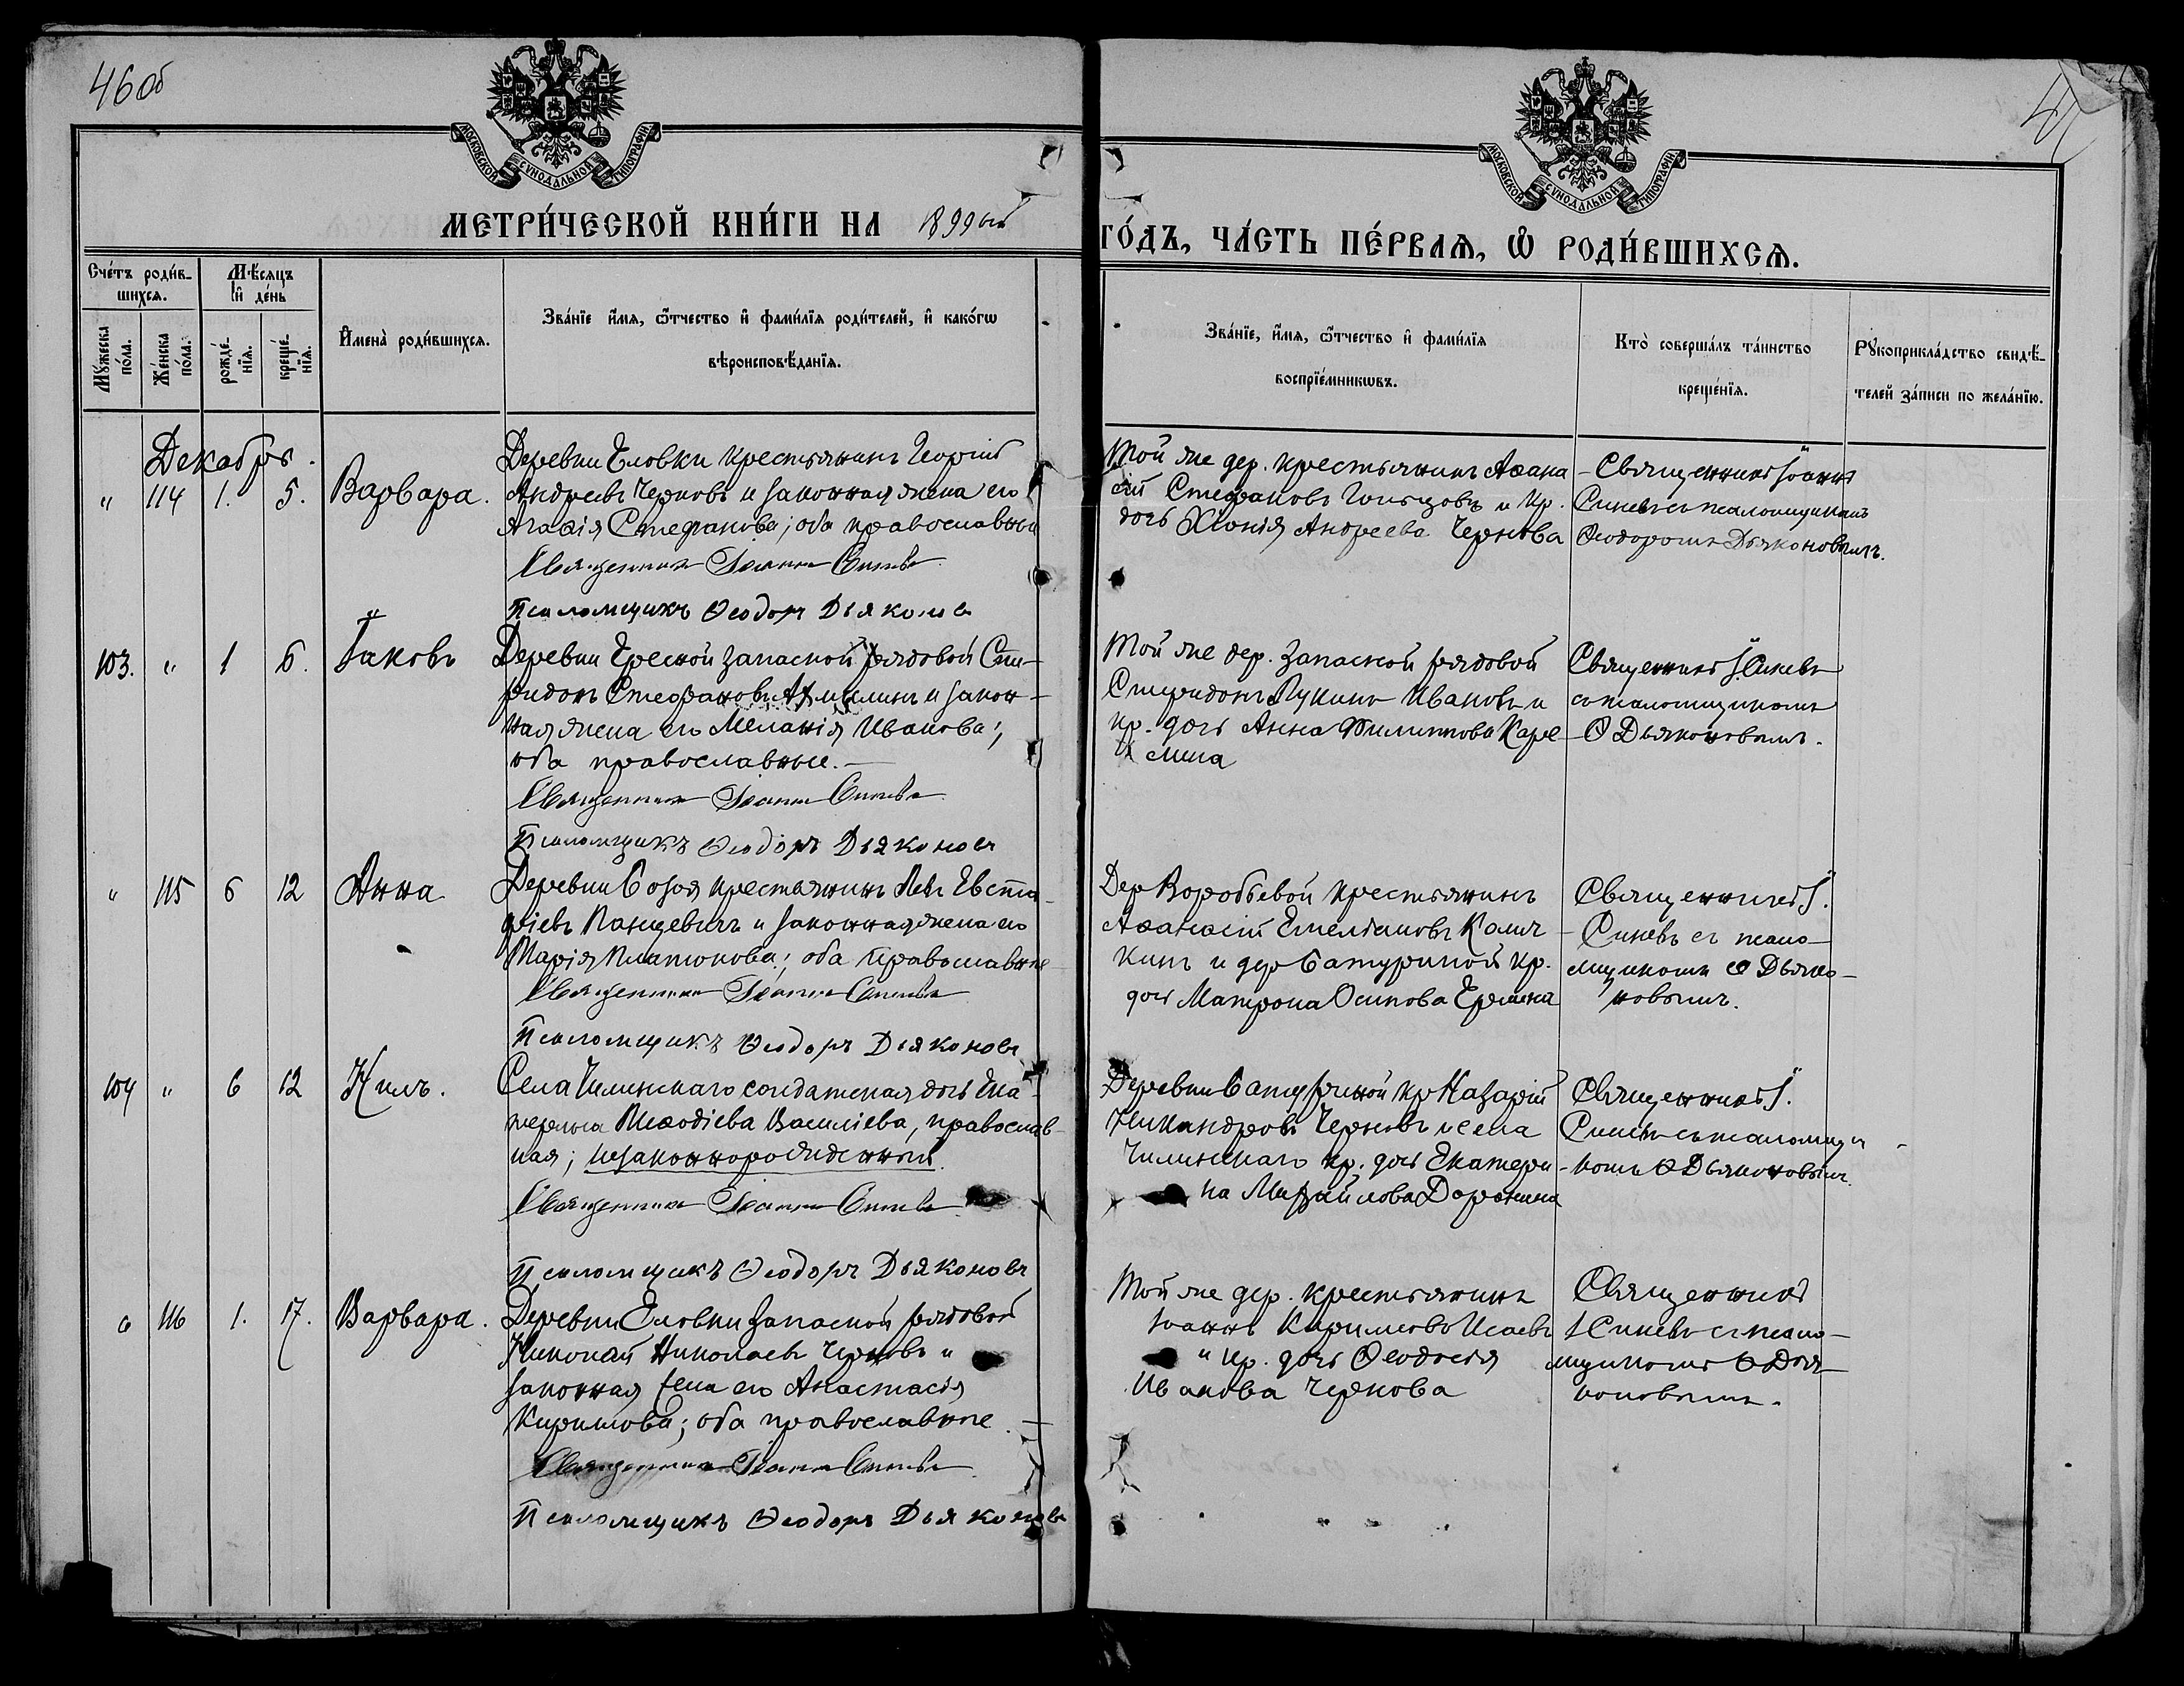 46 об
47
МОСКОВСКОЙ СѴНОДАЛЬНОЙ ТИПОГРАФІИ.
МОСКОВСКОЙ СѴНОДАЛЬНОЙ ТИПОГРАФІИ.
МЕТРИ́ЧЕСКОЙ КНИ́ГИ НА 1899ый ГО́ДЪ, ЧА́СТЬ ПЕ́РВАѦ, Ѡ РОДИ́ВШИХСѦ.
Сче́тъ роди́в-
шихсѧ.
Мѣ́сѧцъ
и҆ де́нь
Мꙋ́жеска
по́ла.
Же́нска
по́ла.
рожде́-
нїѧ.
креще́-
нїѧ.
И҆мена̀ роди́вшихсѧ.
Зва́нїе и҆́мѧ, ѻ҆́тчество и҆ фами́лїѧ роди́телей, и҆ како́гѡ
вѣроисповѣ́данїѧ.
Зва́нїе, и҆́мѧ, ѻ҆́тчество и҆ фами́лїѧ
воспрїе́мникѡвъ.
Кто̀ соверша́лъ та́инство
креще́нїѧ.
Рꙋкоприкла́дство свидѣ́-
телей за́писи по жела́нїю.
Декабрь.
" 114 1. 5. Варвара.
Деревни Еловки крестьянинъ Георгій
Андреевъ Черновъ и законная жена его
Агаѳія Стефанова; оба православные
Священникъ Іоаннъ Синевъ
Псаломщикъ Ѳеодоръ Дьяконовъ
Той же дер. крестьянинъ Аѳана
сій Стефановъ и кр.
дочь Хіонія Андреева Чернова
Священникъ Іоаннъ
Синевъ съ псаломщикомъ
Ѳеодоромъ Дьяконовымъ.
103. " 1 6. Іаковъ
Деревни запасной рядовой Спи-
ридонъ Стефановъ и закон-
ная жена его Меланія Иванова;
оба православные.
Священникъ Іоаннъ Синевъ
Псаломщикъ Ѳеодоръ Дьяконовъ
Той же дер. запасной рядовой
Спиридонъ Лукинъ Ивановъ и
кр. дочь Анна Филиппова Каре
лина
Священникъ І. Синевъ
съ псаломщикомъ
Ѳ Дьяконовымъ.
" 115 6 12 Анна
Деревни крестьянинъ Левъ Евста
фіевъ Панцевичъ и законная жена его
Марія Платонова; оба православные
Священникъ Іоаннъ Синевъ
Псаломщикъ Ѳеодоръ Дьяконовъ
Дер Воробьевой крестьянинъ
Аѳанасій Емельяновъ
и дер Батуриной кр.
дочь Матрона Осипова
Священникъ І.
Синевъ съ псало-
мщикомъ Ѳ Дьяко-
новымъ.
104 " 6 12 Нилъ.
Села Чилинскаго солдатская дочь Ека-
терина Меѳодіева Василіева, православ-
ная; незаконнорожденный
Священникъ Іоаннъ Синевъ
Псаломщикъ Ѳеодоръ Дьяконовъ
Деревни Батуриной кр Назарій
Никандровъ Черновъ и села
Чилинскаго кр. дочь Екатери-
на Михайлова Доронина
Священникъ І.
Синевъ съ псаломщи-
комъ Ѳ Дьяконовымъ.
" 116 1. 17. Варвара.
Деревни Еловки запасной рядовой
Николай Николаевъ Черновъ и
законная жена его Анастасія
Кирилова; оба православные.
Священникъ Іоаннъ Синевъ
Псаломщикъ Ѳеодоръ Дьяконовъ
Той же дер. крестьянинъ
Іоаннъ Кириловъ Исаевъ
и кр. дочь Ѳеодосія
Иванова Чернова
Священникъ
І Синевъ съ псало-
мщикомъ Ѳ Дья-
коновымъ.